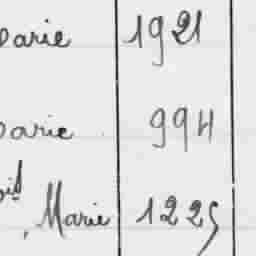 Marie 1921
Marie 994
id
, Marie 1225